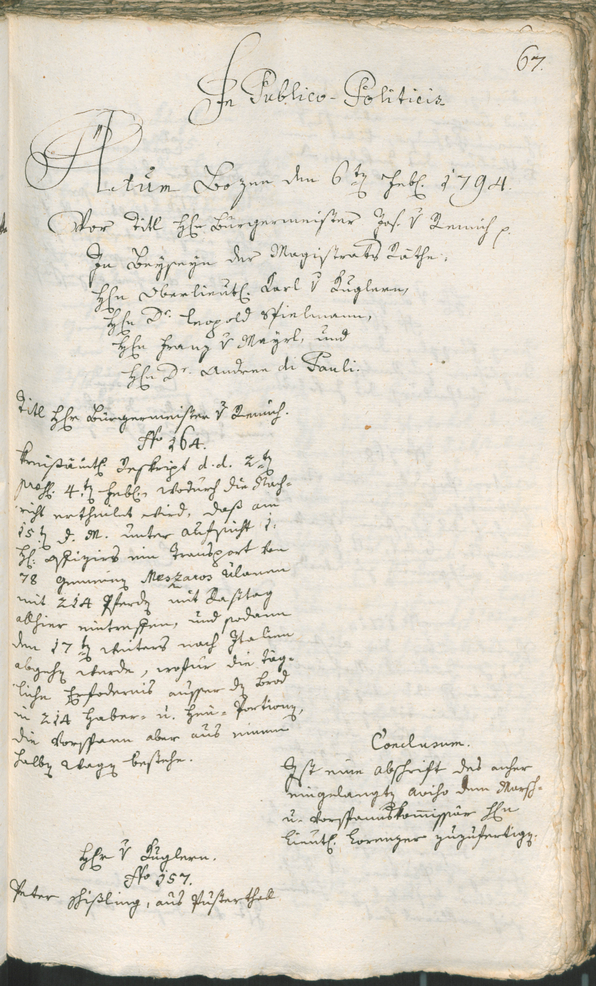 67.
In Publico-Politicis
Actum Bozen den 6ten Febr. 1794.
Vor Titl Hn Bürgermeister Jos. v Remich p.
In Beyseyn der Magistrats Räthe,
Hhn Oberlieut. Karl v Kuglern,
Hhn Dr. Leopold Spielmann,
Hhn Franz v Mayrl, und
Hhn Dr. Andree di Pauli.
Titl Hhr Bürgermeister v Remich.
No 164.
Kreisämtl. Reskript d. d. 2ten
pras. 4ten Febr., wodurch die Nach-
richt ertheilet wird, daß am
15ten d. M. unter Aufsicht 1.
H. Offiziers ein Transport von
78 Gemeine Meszaros Ulanen
mit 214 Pferden mit Rasttag
allhier eintreffen, und sodann
den 17ten weiters nach Italien
abgehen werde, wofür die täg-
liche Erfordernis ausser den Brod
in 214 Haber- u. Heu-Portionen,
die Vorspann aber aus einem
halben Wagen bestehe.
Conclusum.
Ist eine Abschrift des anher
eingelangten Aviso dem Marsch-
u. Vorspannskommissär Hhn
Lieut. Lorenzer zuzufertigen.
Hhr v Kuglern.
No 157.
Peter Schißling, aus Pusterthal